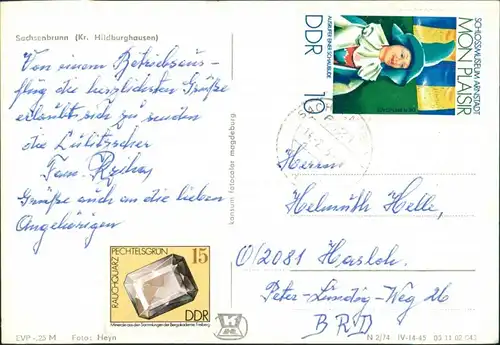 Sachsenbrunn (Kr. Hildburghausen)
Von einem Betriebsaus-
flug die herzlichsten Grüße
erlaubt sich zu senden
die
Fam.
Grüße auch an die lieben
Angehörigen
konsum fotocolor magdeburg
PECHTELSGRÜN 15
RAUCHQUARZ
DDR
Minerale aus den Sammlungen der Bergakademie Freiberg
EVP -,25 M Foto: Heyn
SCHLOSSMUSEUM ARNSTADT
MON PLAISIR
AUSRUFER EINER SCHAUBUDE
DDR 10
Herrn
Helmuth Helle,
2081 Hasloh.
Peter-Lunding-Weg 26
BRD
N 2/74 IV-14-45 05 11 02 043